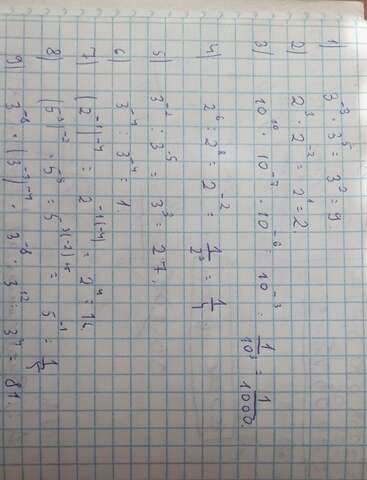 1) 3⁻³ · 3⁵ = 3² = 9
2) 2³ · 2⁻² = 2¹ = 2.
3) 10¹⁰ · 10⁻⁷ · 10⁻⁶ = 10⁻³ = 1/10³ = 1/1000.
4) 2⁶ : 2⁸ = 2⁻² = 1/2² = 1/4
5) 3⁻² : 3⁻⁵ = 3³ = 27.
6) 3⁻⁴ : 3⁻⁴ = 1.
7) (2⁻¹)⁻⁴ = 2⁻¹⁽⁻⁴⁾ = 2⁴ = 16
8) (5³)⁻² : 5⁻⁵ = 5³⁽⁻²⁾⁺⁵ = 5⁻¹ = 1/5
9) 3⁻⁸ · (3⁻³)⁻⁴ = 3⁻⁸ · 3¹² = 3⁴ = 81.